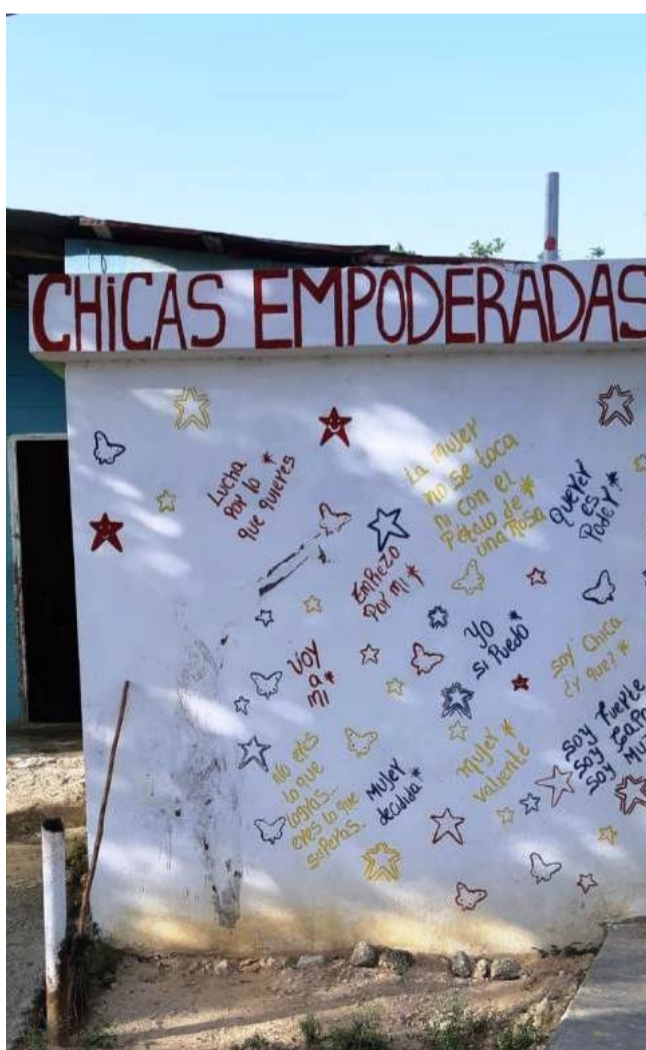 CHiCAS EMPODERADAS
Lucha
Por lo
que quieres
La mujer
no se toca
ni con el
Pétalo de
una Rosa
querer
es
Poder!
EmPiezo
Por mi
Yo
si Puedo
Voy
a
mi
soy Chica
¿y que?
No eres
lo que
logras...
eres lo que
superas.
Mujer
decidida
Mujer
valiente
Soy Fuerte
Soy
Soy